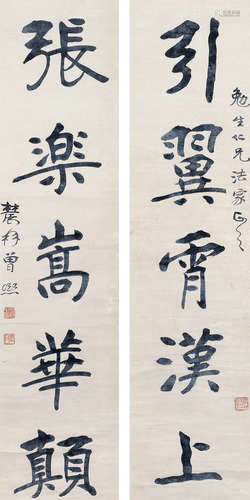 引翼霄漢上
勉生仁兄法家正之
張樂嵩華顛
農髯曾熙